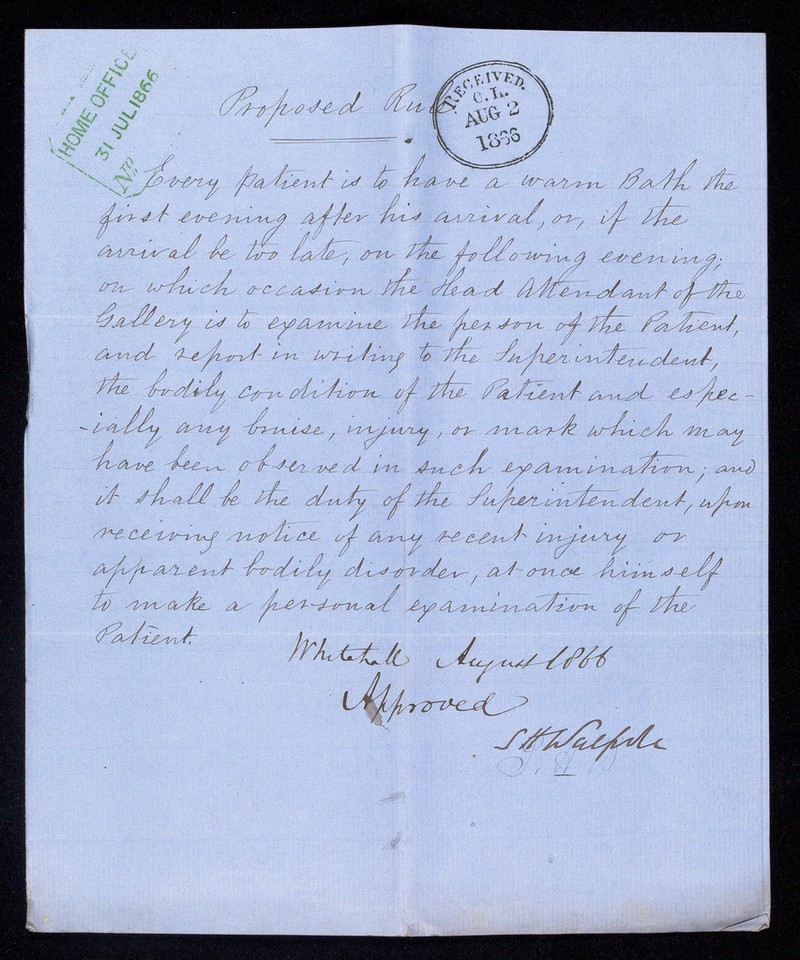 HOME OFFICE
31 JUL 1866
No
RECEIVED.
C.L.
AUG 2
1866
Proposed Rule
Every patient is to have a warm Bath the
first evening after his arrival, or, if the
arrival be too late, on the following evening;
on which occasion the Head Attendant of the
Gallery is to examine the person of the Patient,
and report in writing to the Superintendent,
the bodily condition of the Patient and espec-
-ially any bruise, injury, or mark which may
have been observed in such examination; and
it shall be the duty of the Superintendent, upon
receiving notice of any recent injury or
apparent bodily disorder, at once himself
to make a personal examination of the
Patient.
Whitehall August 1866
Approved
S H Walpole